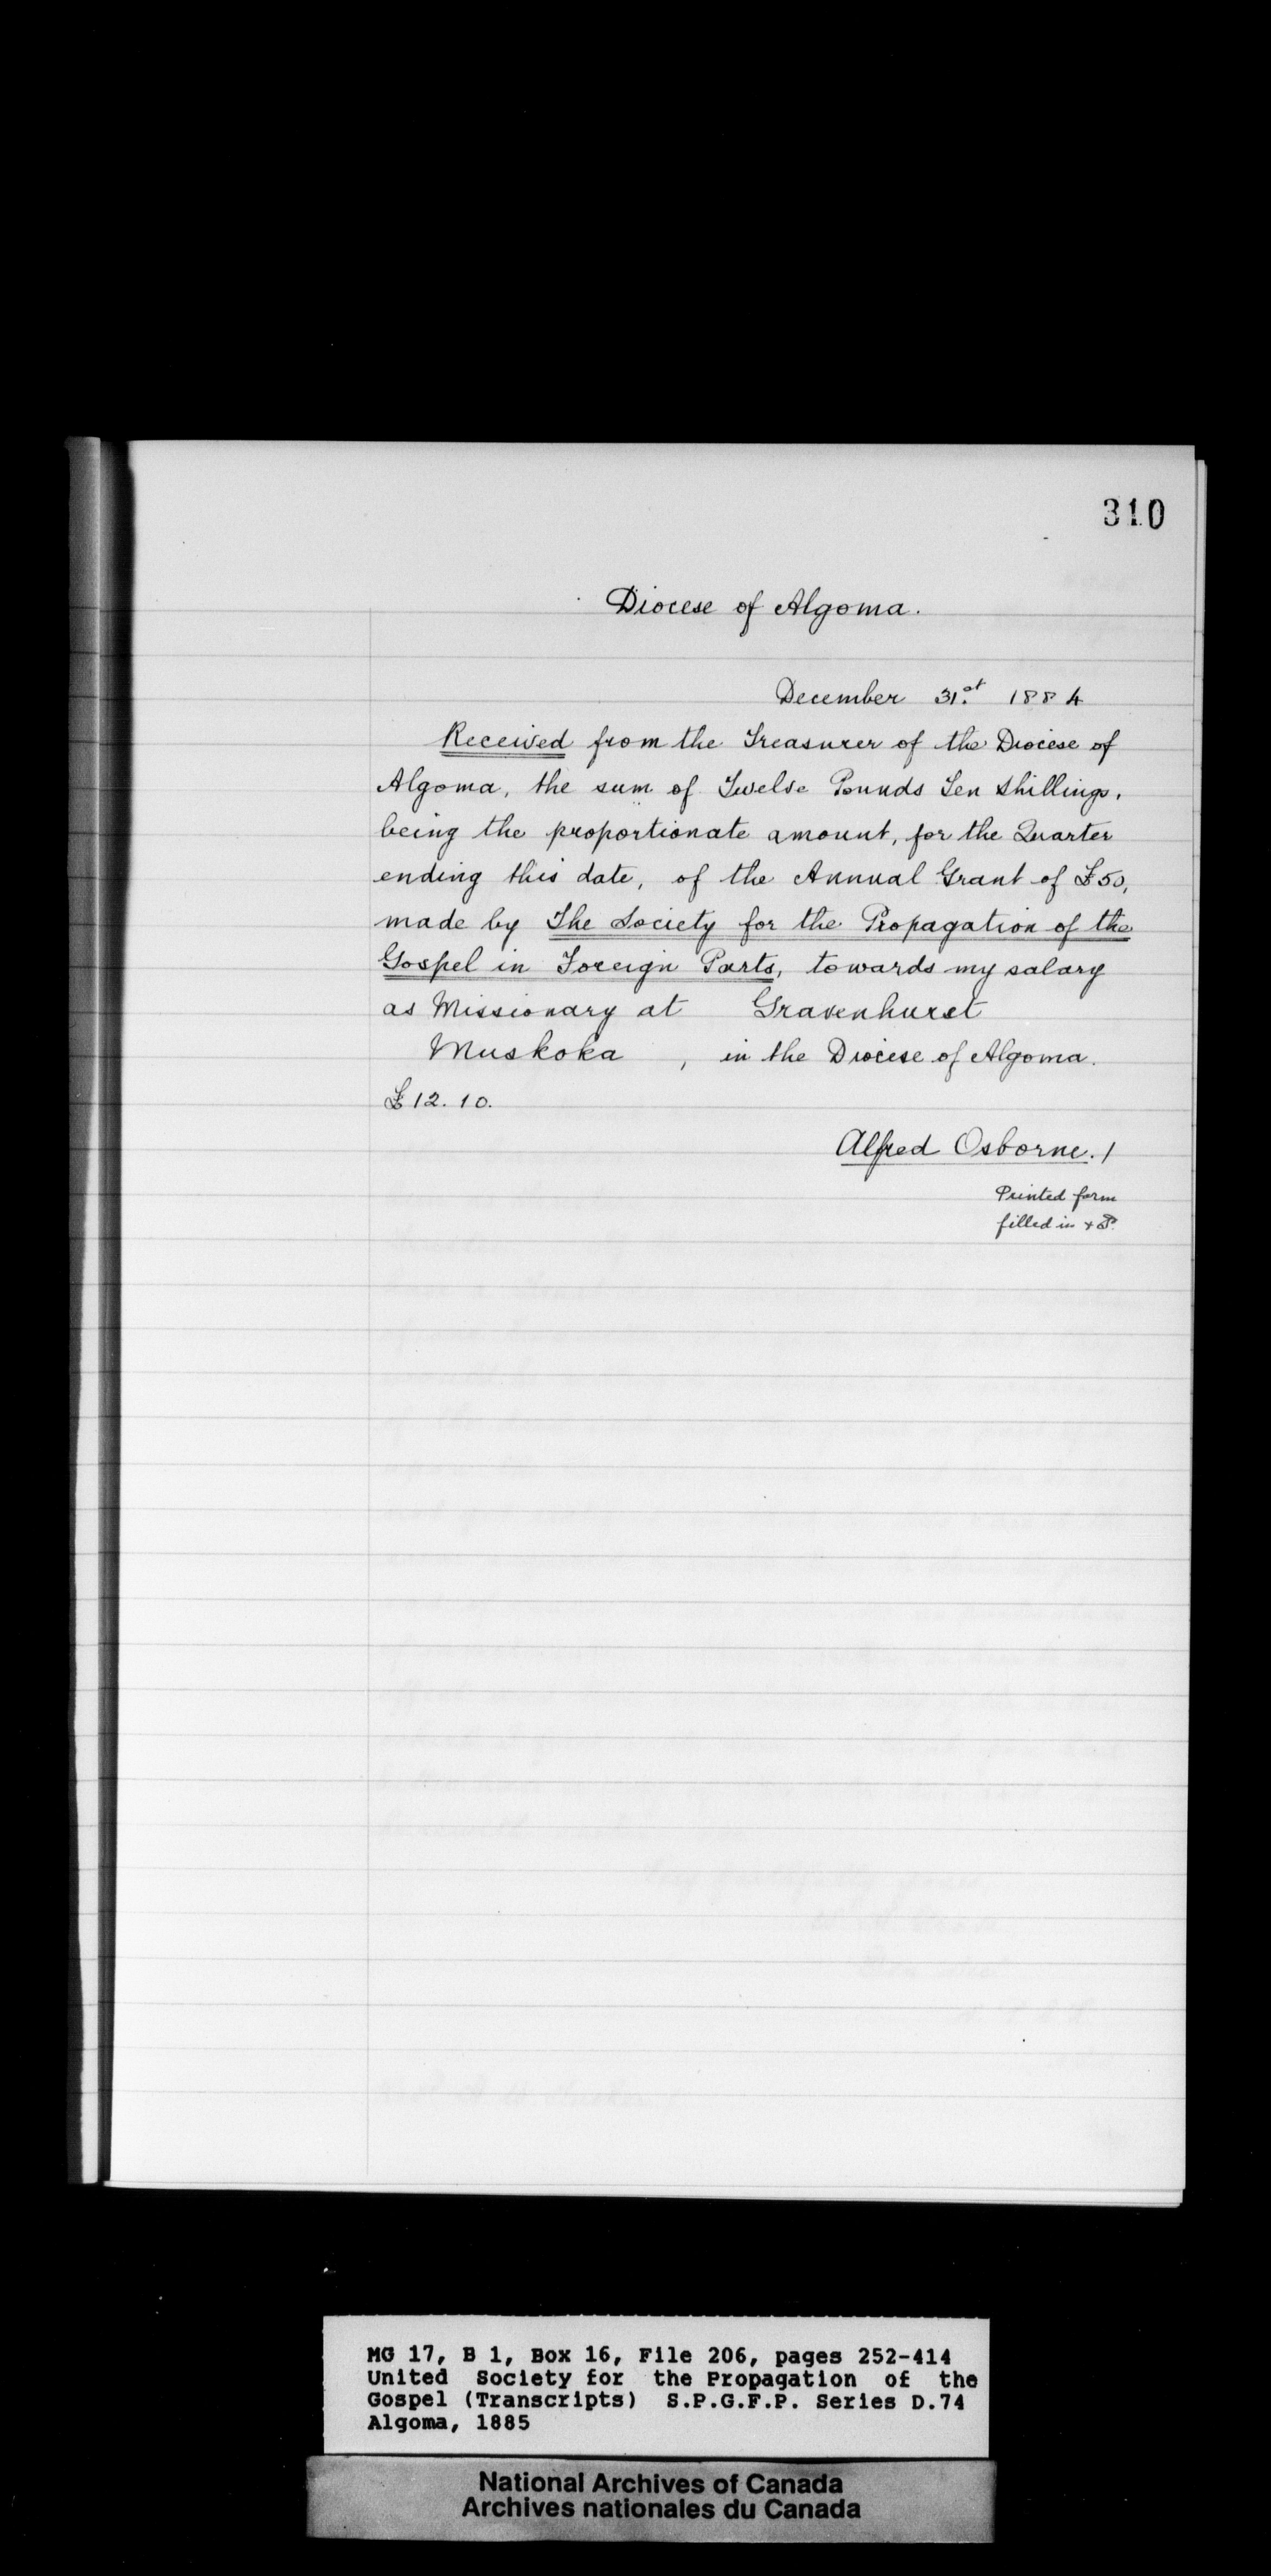 310
Diocese of Algoma.
December 31.st 1884
Received from the Treasurer of the Diocese of
Algoma, the sum of Twelve Pounds Ten Shillings,
being the proportionate amount, for the Quarter
ending this date, of the Annual Grant of £50,
made by The Society for the Propagation of the
Gospel in Foreign Parts, towards my salary
as Missionary at Gravenhurst
Muskoka , in the Diocese of Algoma.
£12.10.
Alfred Osborne. /
Printed form
filled in +
MG 17, B 1, Box 16, File 206, pages 252-414
United Society for the Propagation of the
Gospel (Transcripts) S.P.G.F.P. Series D.74
Algoma, 1885
National Archives of Canada
Archives nationales du Canada